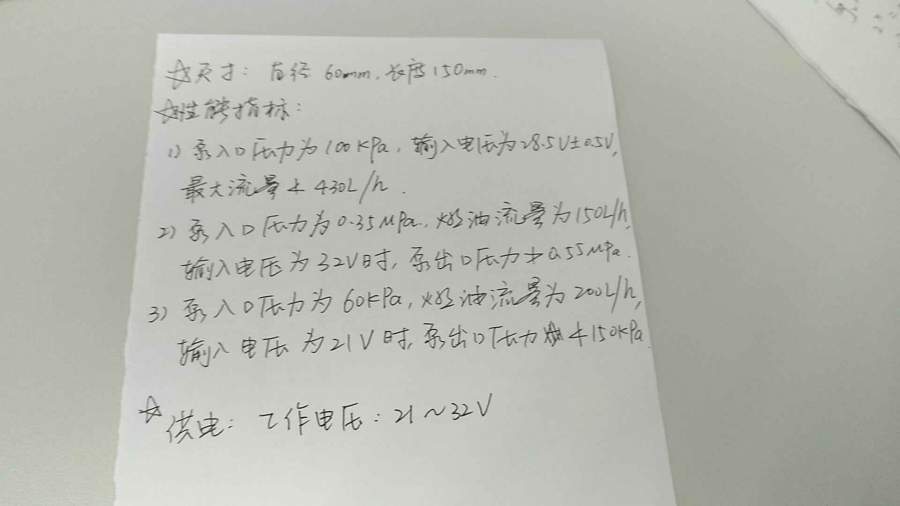 ☆尺寸: 直径 60mm, 长度150mm.
☆性能指标:
1) 泵入口压力为100KPa, 输入电压为28.5V±0.5V,
最大流量≮430L/h.
2) 泵入口压力为0.35MPa, 燃油流量为150L/h,
输入电压为32V时, 泵出口压力≯0.55MPa.
3) 泵入口压力为60KPa, 燃油流量为200L/h,
输入电压为21V时, 泵出口压力≮150KPa.
☆ 供电: 工作电压: 21~32V